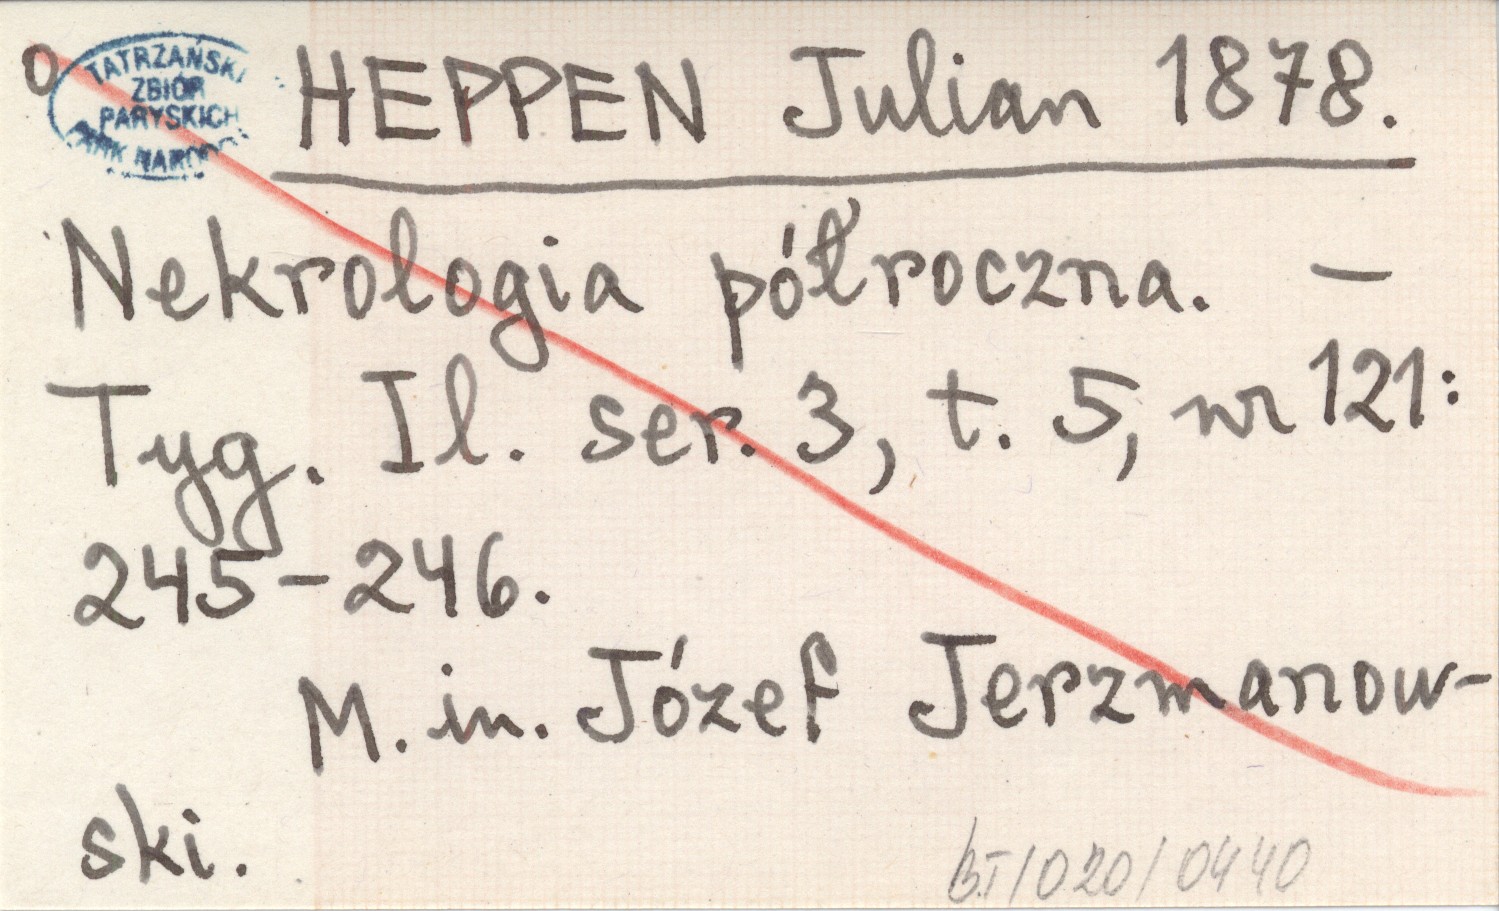 O
TATRZAŃSKI
ZBIÓR
PARYSKICH
PARK NARODO
HEPPEN Julian 1878.
Nekrologia półroczna. –
Tyg. Il. ser. 3, t. 5, nr 121:
245–246.
M. in. Józef Jerzmanow-
ski.
B.T/020/0440